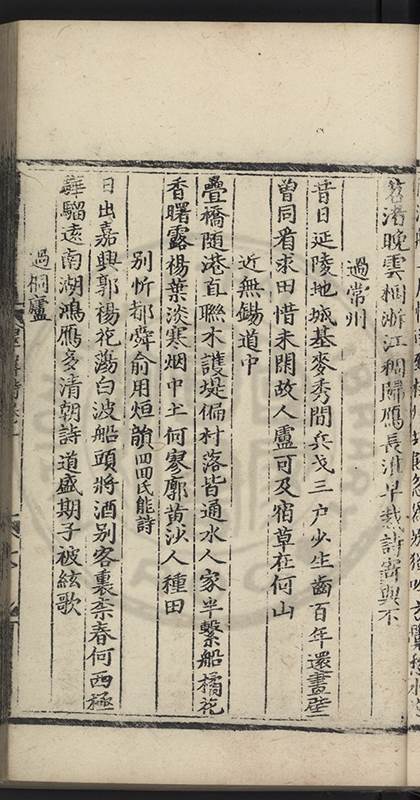 渚晚雲桐浙江稠歸鴈長淮早熟詩寄與不
過常州
昔日延陵地城基麥秀間兵戈三户少生齒百年還畫壁
曽同看求田惜未閑故人廬可及宿草在何山
近無錫道中
疊橋隨港直聯木護堤偏村落皆通水人家半繫船橘花
香曙露楊葉淡寒烟中土何寥廓黄沙人種田
别忻都舜俞用烜韻四田氏能詩
日出嘉興郭楊花蕩白波船頭將酒别客裏柰春何西極
驊騮遠南湖鴻鴈多清朝詩道盛期子被絃歌
過桐廬